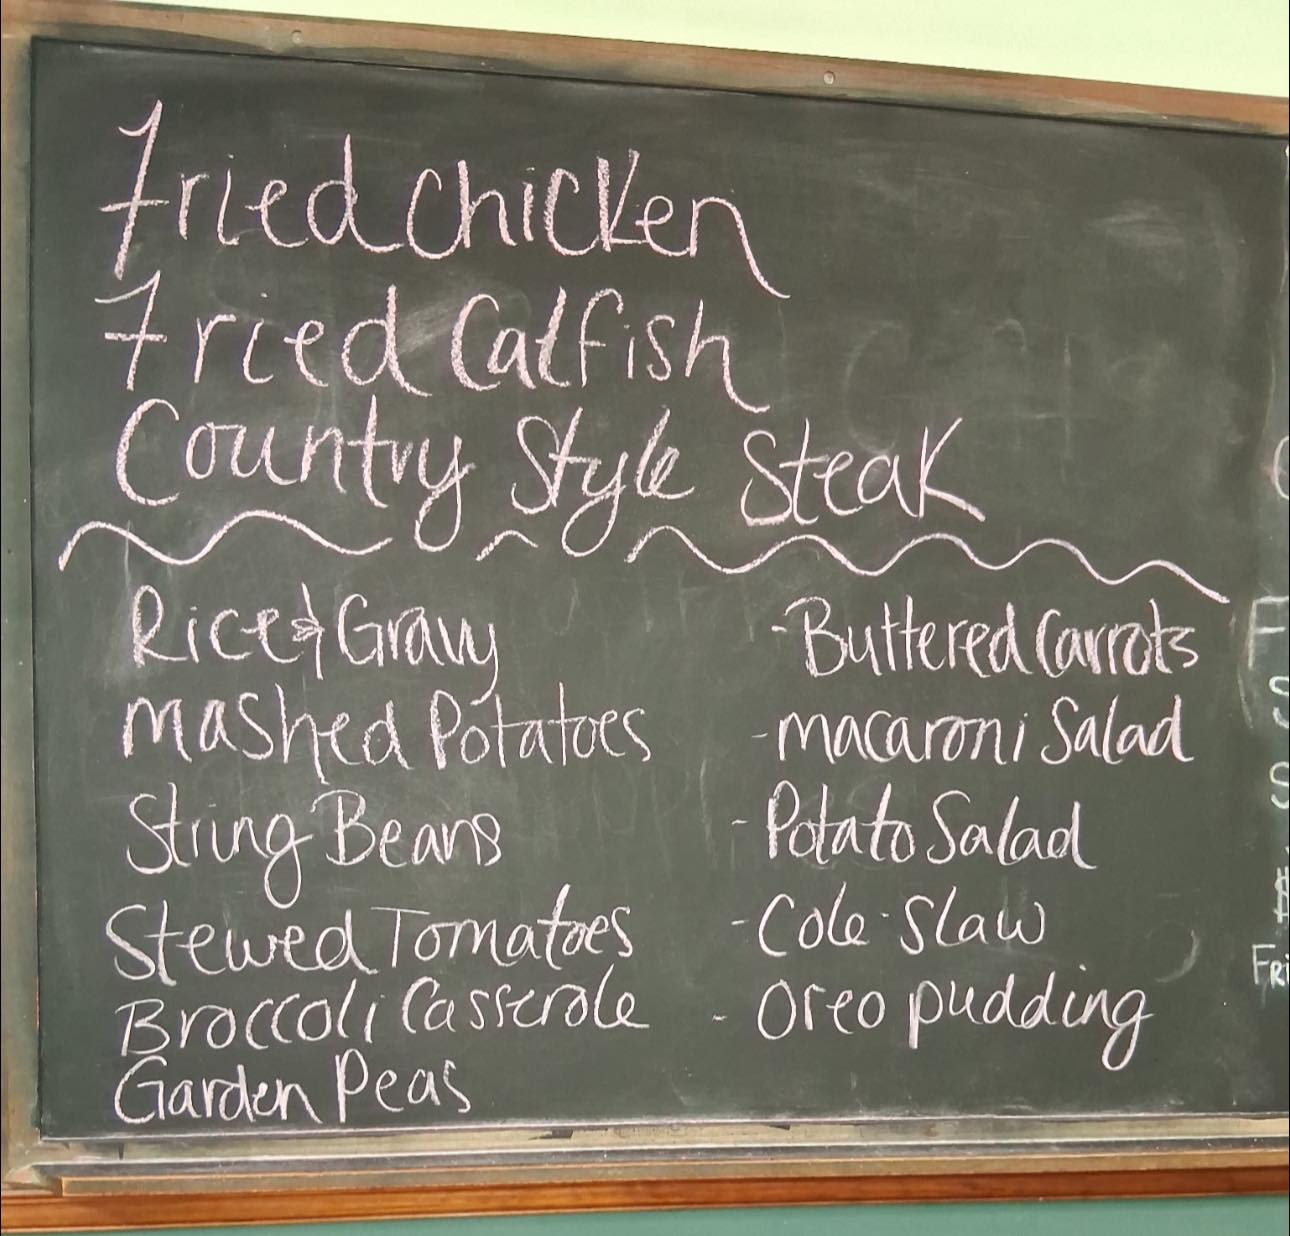 Fried Chicken
Fried Catfish
Country Style Steak
Rice & Gravy
Mashed Potatoes
String Beans
Stewed Tomatoes
Broccoli Casserole
Garden Peas
- Buttered Carrots
- macaroni Salad
- Potato Salad
- Cole-Slaw
- Oreo pudding
F
S
S
$
FRI